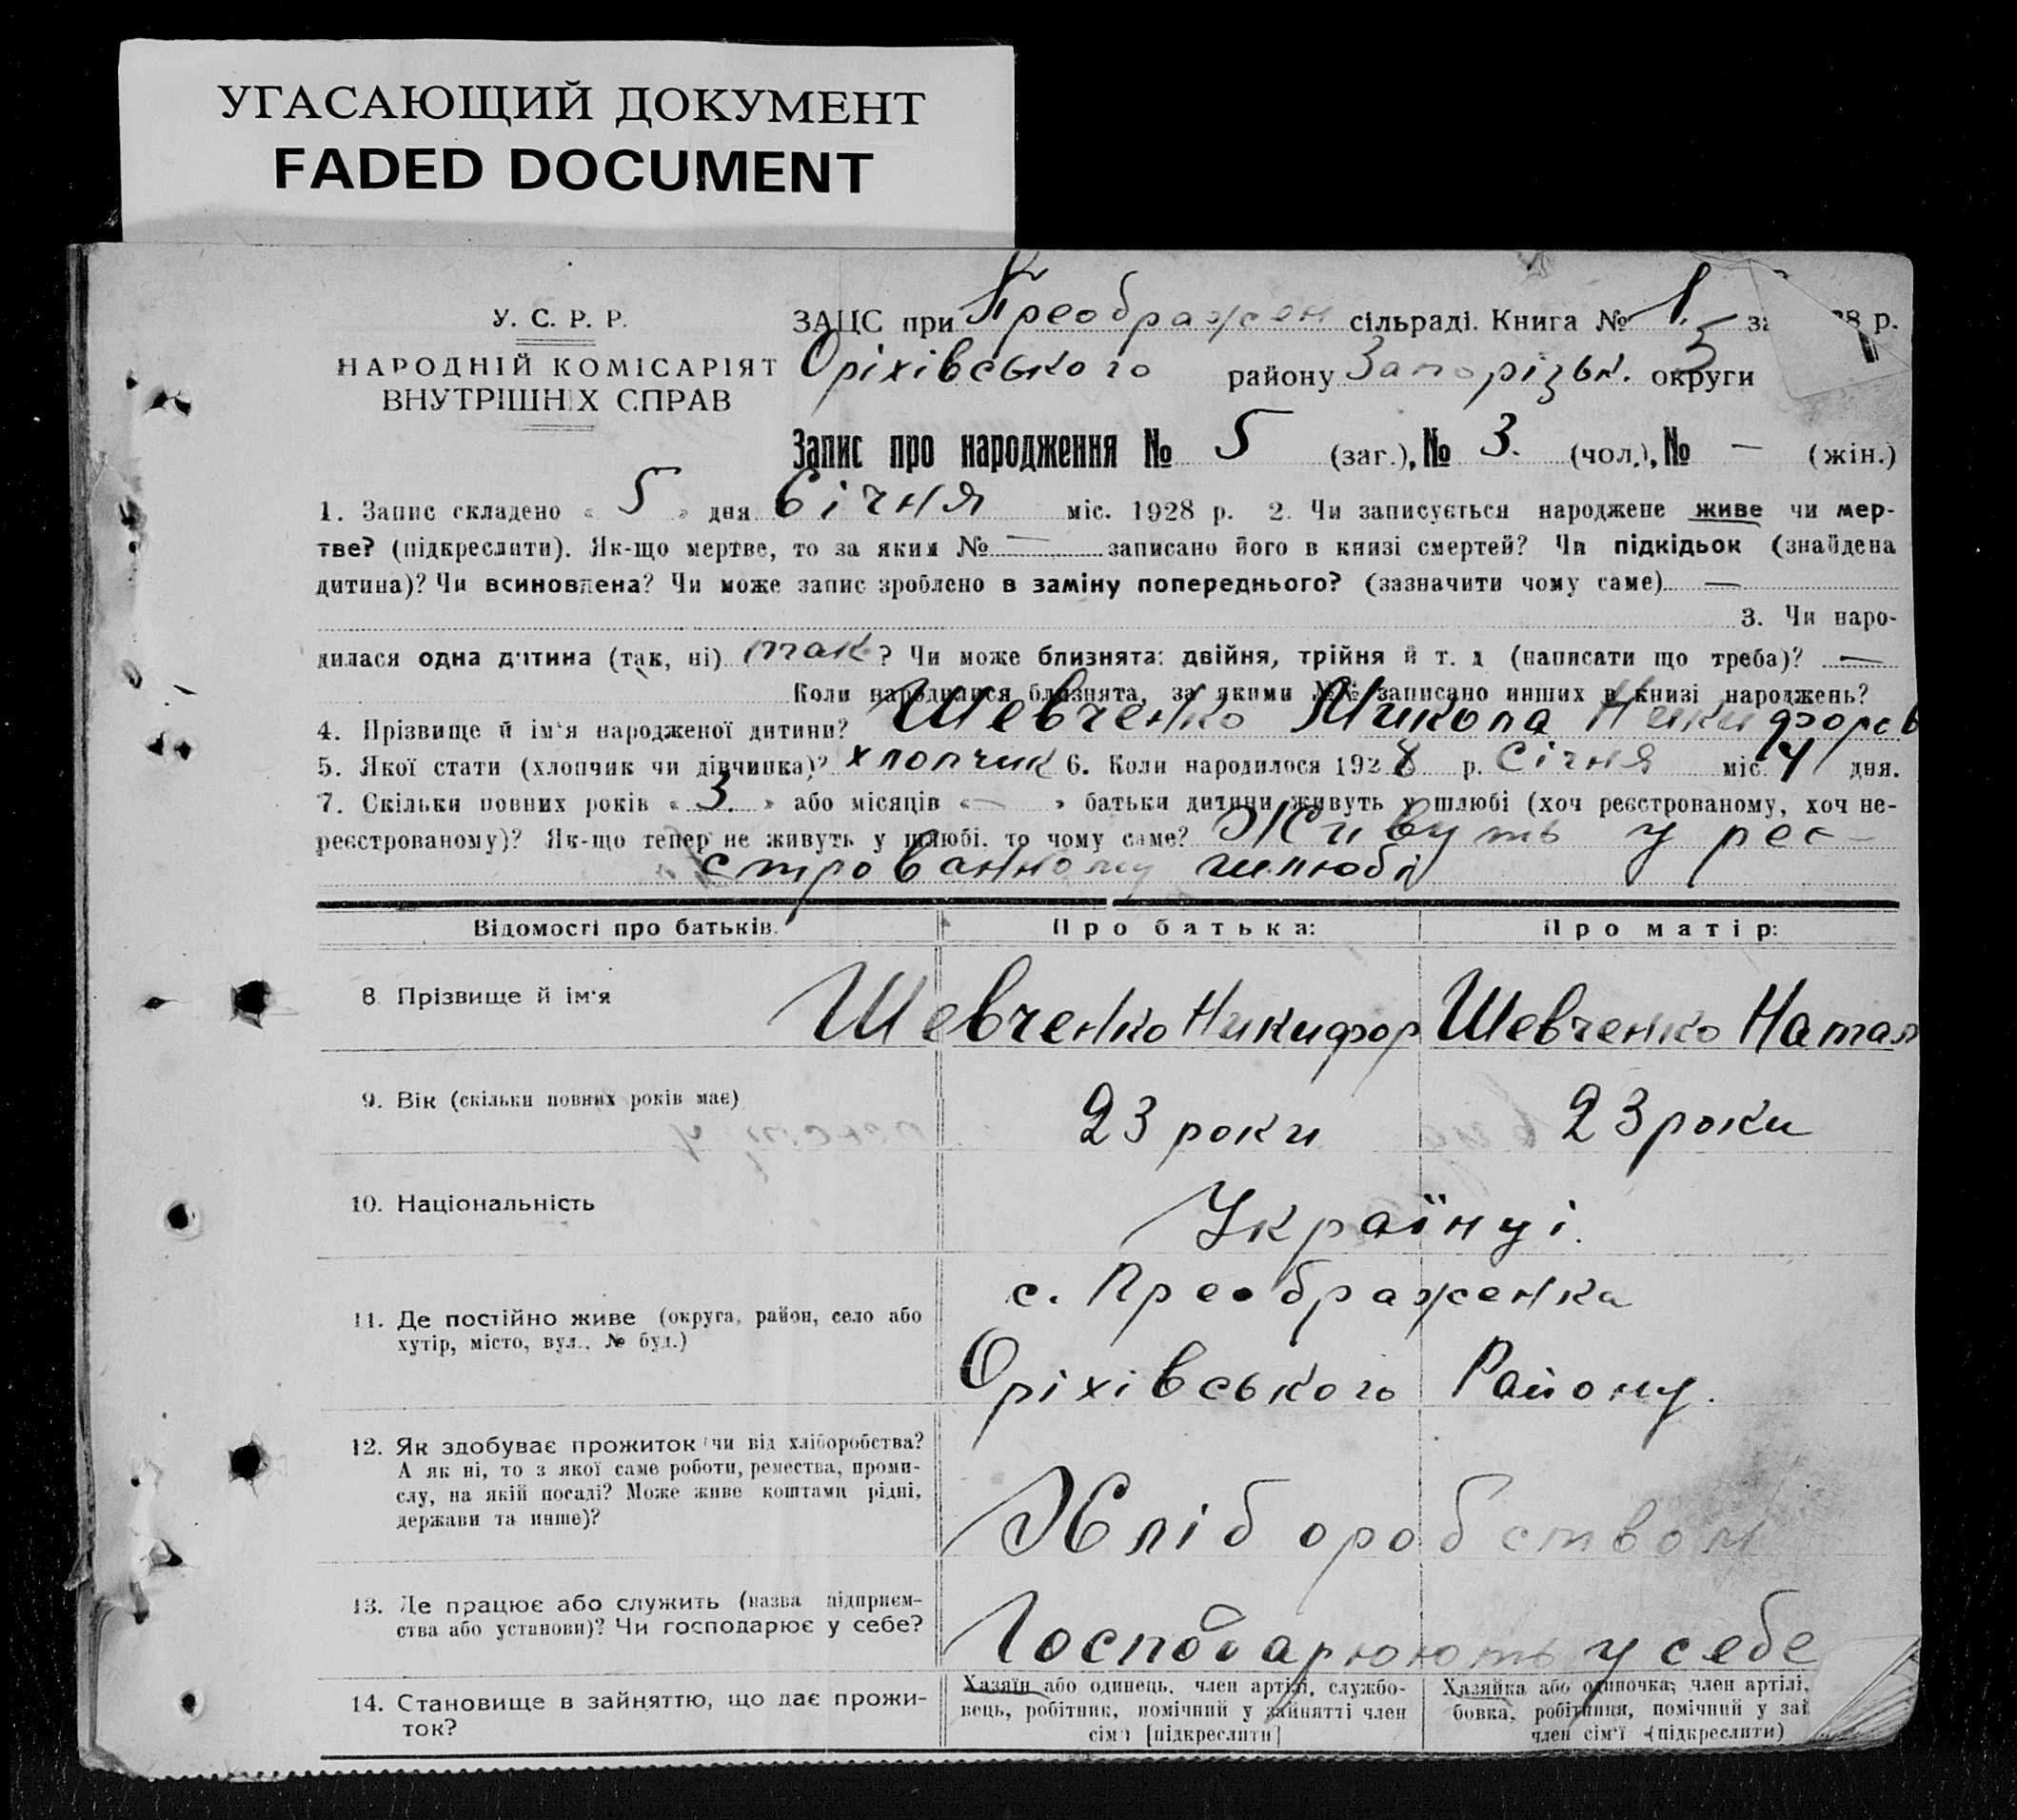 УГАСАЮЩИЙ ДОКУМЕНТ
FADED DOCUMENT
У. С. Р. Р.
НАРОДНІЙ КОМІСАРІЯТ
ВНУТРІШНІХ СПРАВ
ЗАЦС при Преображен сільраді. Книга № 1. за 28 р.
Оріхівського району Запорізьк. округи 5
Запис про народження № 5 (заг.), № 3. (чол.), № — (жін.)
1. Запис складено « 5 » дня Січня міс. 1928 р. 2. Чи записується народжене живе чи мер-
тве? (підкреслити). Як-що мертве, то за яким № — записано його в книзі смертей? Чи підкідьок (знайдена
дитина)? Чи всиновлена? Чи може запис зроблено в заміну попереднього? (зазначити чому саме) —
3. Чи наро-
дилася одна дитина (так, ні) так? Чи може близнята: двійня, трійня й т. д (написати що треба)? —
Коли народилися близнята, за якими №№ записано инших в книзі народжень?
4. Прізвище й ім'я народженої дитини? Шевченко Микола Никифоров
5. Якої стати (хлопчик чи дівчинка)? хлопчик 6. Коли народилося 1928 р. Січня міс. 4 дня.
7. Скільки повних років « 3. » або місяців « — » батьки дитини живуть у шлюбі (хоч реєстрованому, хоч не-
реєстрованому)? Як-що тепер не живуть у шлюбі, то чому саме? Живуть у реє-
строванному шлюбі
Відомості про батьків. Про батька: Про матір:
8. Прізвище й ім'я Шевченко Никифор Шевченко Натал
9. Вік (скільки повних років має) 23 роки 23 роки
10. Національність Українці.
с. Преображенка
11. Де постійно живе (округа, район, село або
хутір, місто, вул., № буд.)
Оріхівського Району.
12. Як здобуває прожиток (чи від хліборобства?
А як ні, то з якої саме роботи, ремества, проми-
слу, на якій посаді? Може живе коштами рідні,
держави та инше)?
Хліборобством
13. Де працює або служить (назва підприєм-
ства або установи)? Чи господарює у себе?
Господарюють у себе
14. Становище в зайняттю, що дає прожи-
ток?
Хазяїн або одинець, член артілі, службо-
вець, робітник, помічний у зайнятті член
сім'ї [підкреслити]
Хазяйка або одиночка, член артілі,
бовка, робітниця, помічний у заї
член сім'ї (підкреслити)